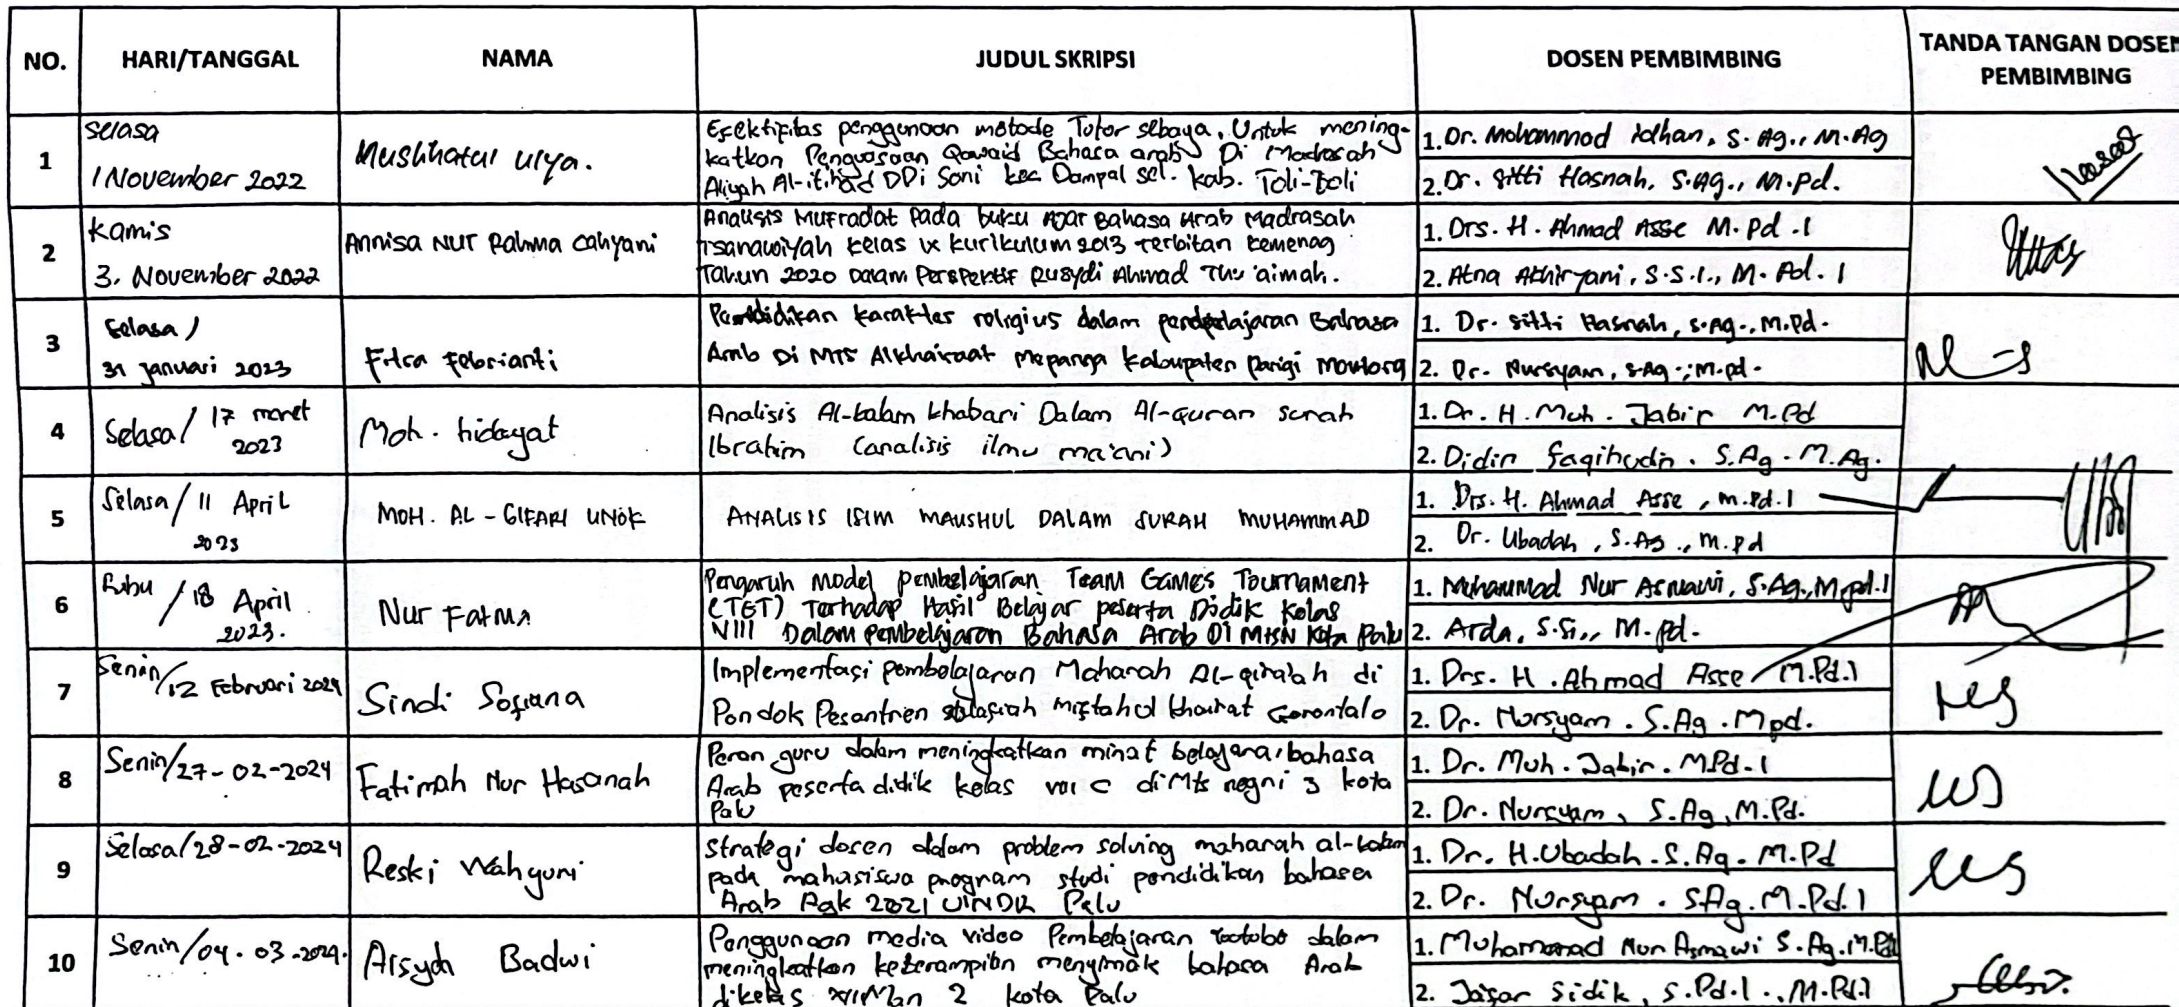 NO. HARI/TANGGAL NAMA JUDUL SKRIPSI DOSEN PEMBIMBING TANDA TANGAN DOSEN
PEMBIMBING
1
selasa
1 November 2022
Mushhatul ulya.
Efektifitas penggunaan metode Tutor sebaya, Untuk mening-
katkan Penguasaan Qawaid Bahasa arab Di Madrasah
Aliyah Al-itihad DDi Soni kec Dampal sel. kab. Toli-Toli
1. Dr. Mohammad idhan, S. Ag., M.Ag
2. Dr. Sitti Hasnah, S.Ag., M.Pd.
2
kamis
3. November 2022
Annisa Nur Rahma cahyani
Analisis Mufradat Pada buku Ajar Bahasa Arab Madrasah
Tsanawiyah kelas IX kurikulum 2013 Terbitan kemenag
Tahun 2020 Dalam Perspektif Rusydi Ahmad Thu'aimah.
1. Drs. H. Ahmad Asse M. Pd .I
2. Atna Akhiryani, S.S.I., M. Pd. I
3
Selasa /
31 januari 2023
Fitra Febrianti
karakter religius dalam Bahasa
Arab Di MTS Alkhairaat Mepanga Kabupaten Parigi Moutong
1. Dr. Sitti Hasnah, S.Ag., M.Pd.
2. Dr. Nursyam, S.Ag., M.pd.
4
Selasa / 17 maret
2023
Moh. hidayat
Analisis Al-kalam khabari Dalam Al-Quran surah
Ibrahim (analisis ilmu ma'ani)
1. Dr. H. Moh. Jabir M.Pd
2. Didin Faqihudin. S.Ag. M.Ag.
5
Selasa / 11 April
2023
MOH. AL-GIFARI UNOK
ANALISIS ISIM MAUSHUL DALAM SURAH MUHAMMAD
1. Drs. H. Ahmad Asse, m.Pd.I
2. Dr. Ubadah, S.Ag., M.Pd
6
Rabu / 18 April
2023.
Nur Fatma
Pengaruh Model pembelajaran Team Games Tournament
(TGT) Terhadap Hasil Belajar peserta Didik Kelas
VIII Dalam Pembelajaran Bahasa Arab Di MTsN Kota Palu
1. Muhammad Nur Asmawi, S.Ag., M.pd.I
2. Arda, S.Si., M.Pd.
7
Senin / 12 Februari 2024
Sindi Sofiana
Implementasi pembelajaran Maharah Al-qira'ah di
Pondok Pesantren Miftahul khairat Gorontalo
1. Drs. H. Ahmad Asse M.Pd.I
2. Dr. Nursyam. S.Ag. Mpd.
8
Senin/27-02-2024
Fatimah Nur Hasanah
Peran guru dalam meningkatkan minat bahasa
Arab peserta didik kelas VIII C di Mts negri 3 kota
Palu
1. Dr. Muh. Jabir. MPd.I
2. Dr. Nursyam, S.Ag, M.Pd.
9
Selasa/28-02-2024
Reski Wahyuni
Strategi dosen dalam problem solving maharah al-kalam
pada mahasiswa program studi pendidikan bahasa
Arab Agk 2021 UINDK Palu
1. Dr. H. Ubadah. S.Ag. M.Pd
2. Dr. Nursyam. S.Ag. M.Pd.I
10
Senin/04-03-2024.
Aisyah Badwi
Penggunaan media video Pembelajaran dalam
meningkatkan keterampilan menyimak bahasa Arab
dikelas Man 2 kota Palu
1. Mohammad Nur Asmawi S.Ag. M.Pd
2. Jafar Sidik, S.Pd.I., M.Pd.I